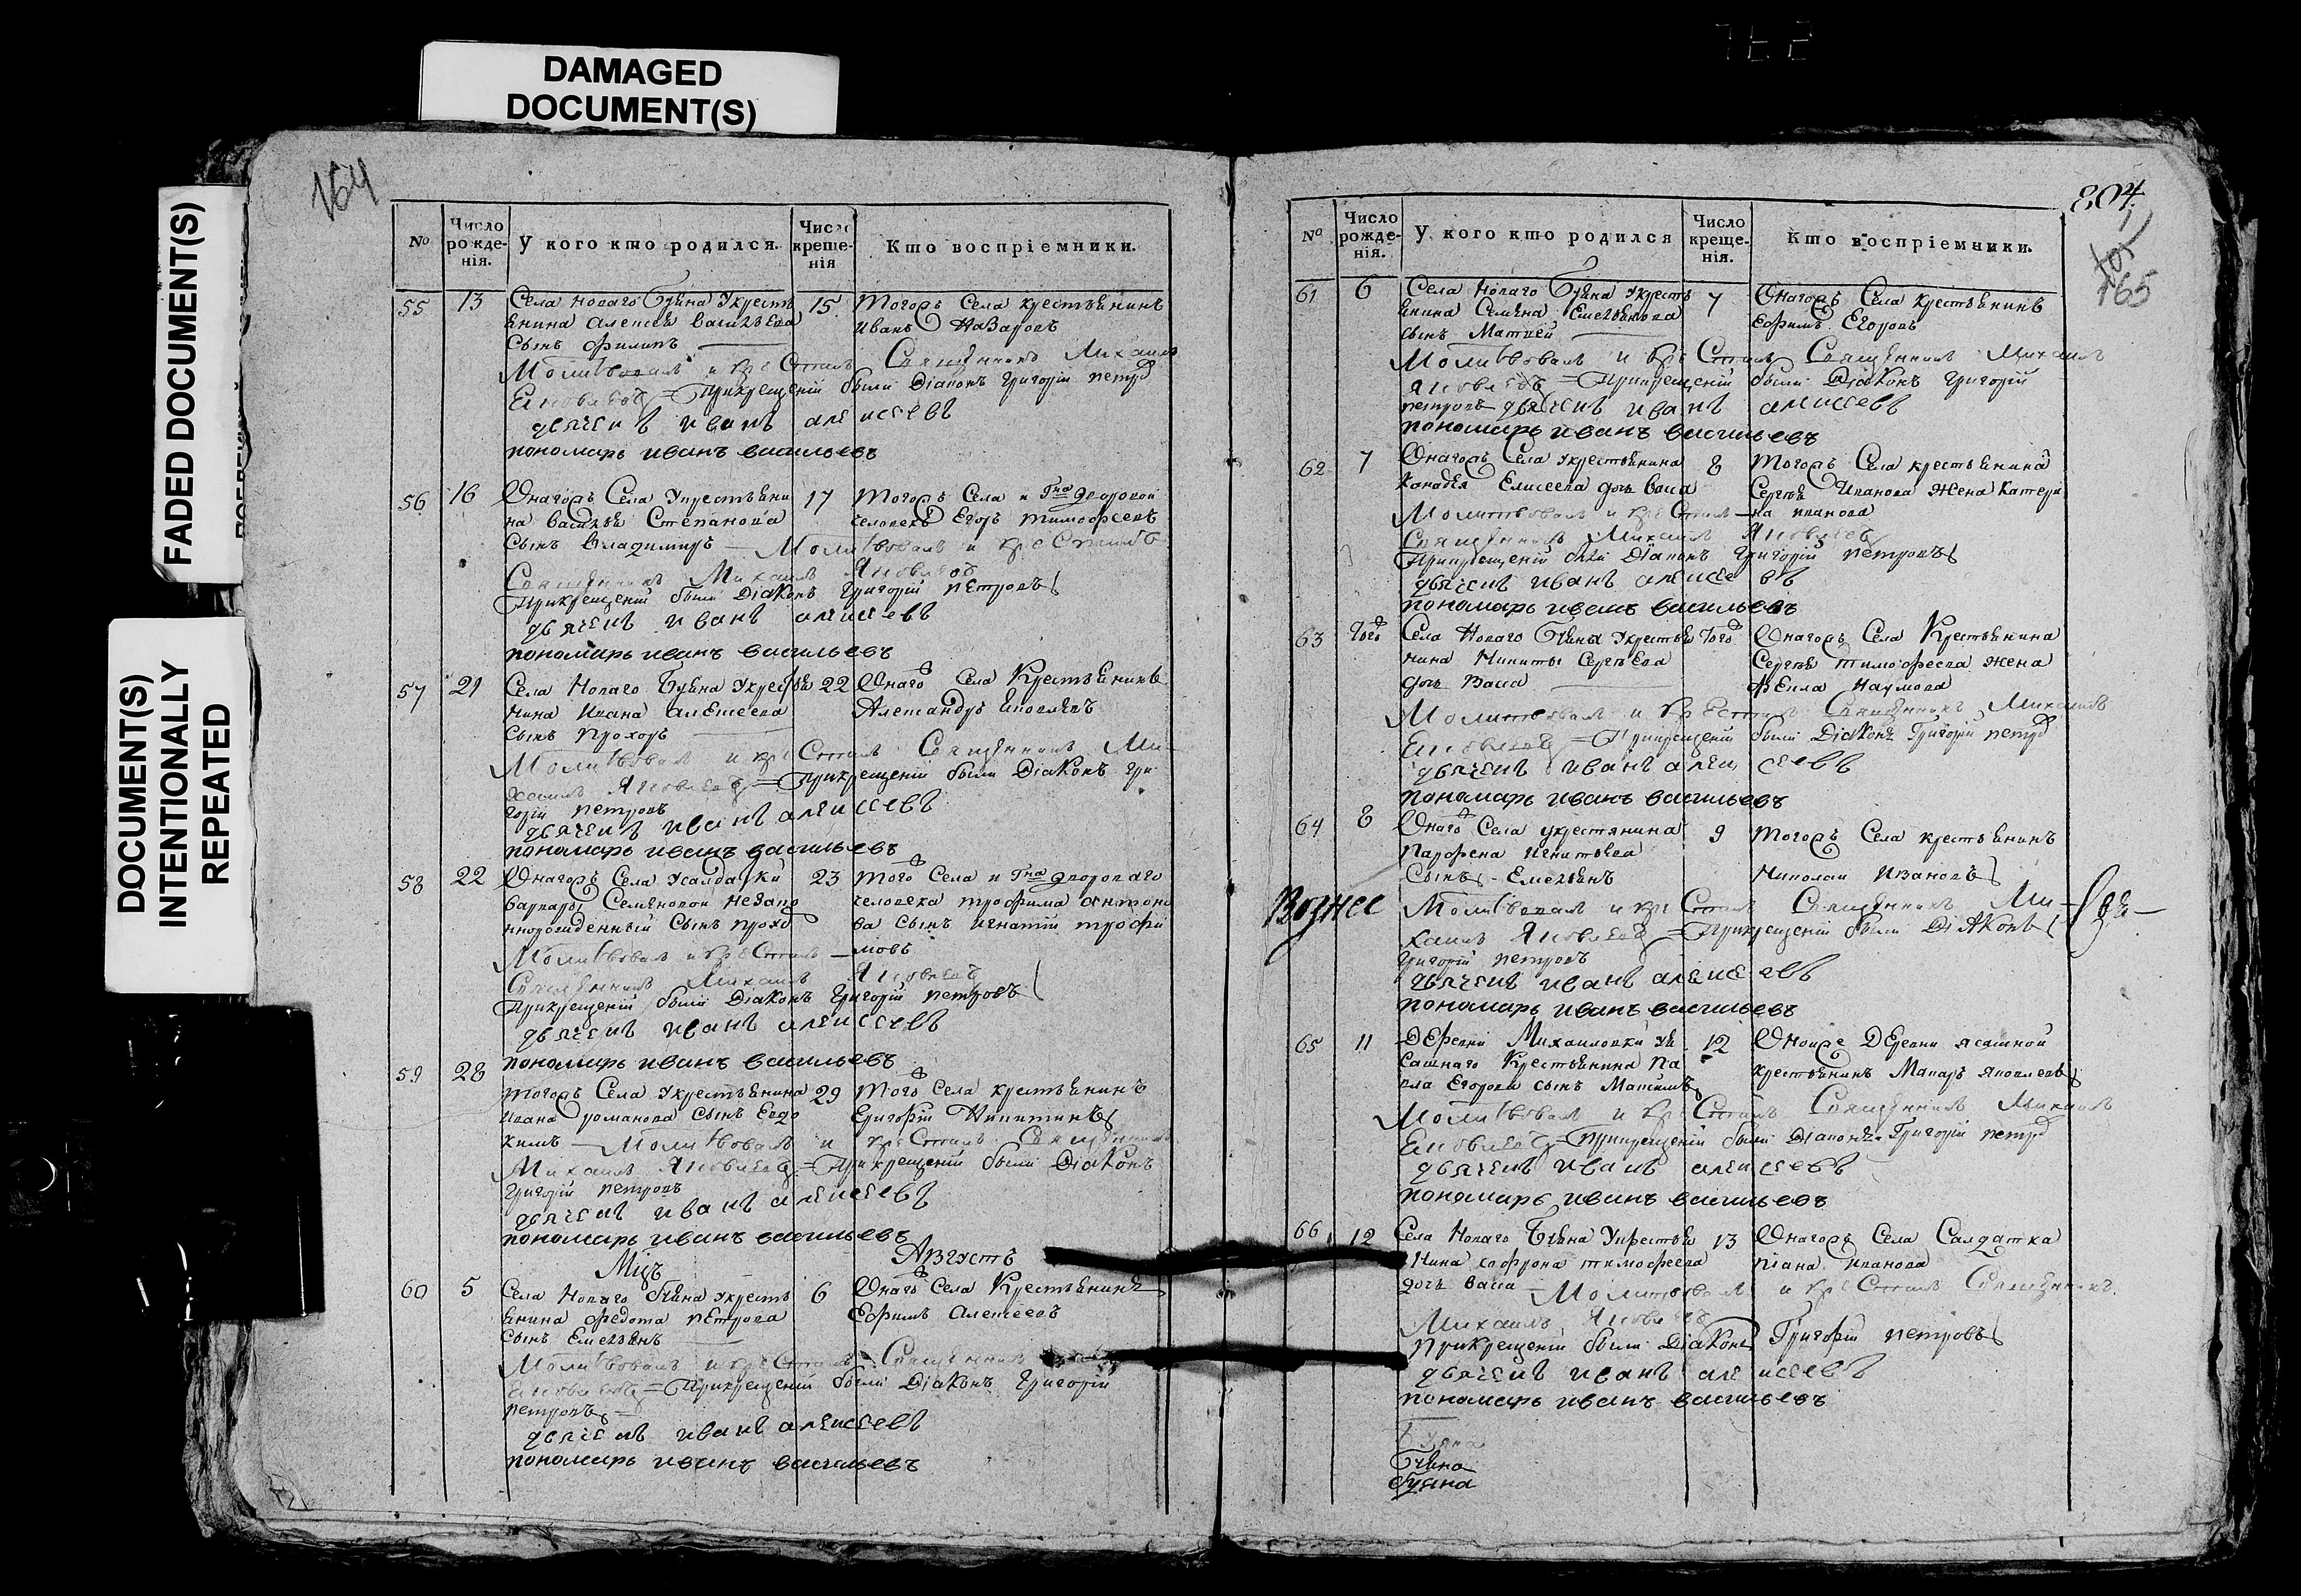 DAMAGED
DOCUMENT(S)
FADED DOCUMENT(S)
DOCUMENT(S)
INTENTIONALLY
REPEATED
164
№
Число рожденія.
У кого кто родился.
Число крещенія
Кто воспріемники.
55 13 Села Новаго Буяна Укресть 15 тогожъ Села крестьянинъ
янина Алексея Васильева Иванъ Назаровъ
Сынъ Филипъ
Молитвовалъ и крестилъ Священникъ Михаилъ
Яковлевъ = Прикрещеніи были Діаконъ Григорій петровъ
дьячекъ иванъ алексеевъ
пономарь иванъ васильевъ
56 16 Онагожъ Села Укрестьяни 17 тогожъ Села и Гна дворовой
на Василья Степанова человекъ Егоръ тимофеевъ
Сынъ Владимиръ — Молитвовалъ и крестилъ
Священникъ Михаилъ Яковлевъ
Прикрещеніи были Діаконъ Григорій петровъ
дьячекъ иванъ алексеевъ
пономарь иванъ васильевъ
57 21 Села Новаго Буяна Укрестья 22 Онаго Села Крестьянинъ
нина Ивана алексеева Александръ Яковлевъ
Сынъ Прохоръ
Молитвовалъ и крестилъ Священникъ Ми-
хаилъ Яковлевъ = Прикрещеніи были Діаконъ Гри-
горій петровъ
дьячекъ иванъ алексеевъ
пономарь иванъ васильевъ
58 22 Онагожъ Села Усалдатки 23 того Села и Гна двороваго
варвары Семеновой незако человека трофима антоно
ннорожденный Сынъ прохо ва сынъ игнатій трофи
Молитвовалъ и крестилъ — мовъ
Священникъ Михаилъ Яковлевъ
Прикрещеніи были Діаконъ Григорій петровъ
дьячекъ иванъ алексеевъ
пономарь иванъ васильевъ
59 28 тогожъ Села Укрестьянина 29 того Села крестьянинъ
ивана романова Сынъ Евдо Григорій Никитинъ
кимъ — Молитвовалъ и крестилъ Священникъ
Михаилъ Яковлевъ = Прикрещеніи были Діаконъ
Григорій петровъ
дьячекъ иванъ алексеевъ
пономарь иванъ васильевъ
Мцъ Августъ
60 5 Села Новаго Буяна Укресть 6 Онаго Села Крестьянинъ
янина федота петрова Ефимъ Алексеевъ
Сынъ Емельянъ
Молитвовалъ и крестилъ Священникъ
Яковлевъ = Прикрещеніи были Діаконъ Григорій
петровъ
дьячекъ иванъ алексеевъ
пономарь иванъ васильевъ
804
165
№
Число рожденія.
У кого кто родился
Число крещенія.
Кто воспріемники.
61 6 Села Новаго Буяна Укресть 7 Онагожъ Села крестьянинъ
янина Семена Емельянова Ефимъ Егоровъ
сынъ Матвей
Молитвовалъ и крестилъ Священникъ Михаилъ
Яковлевъ = Прикрещеніи были Діаконъ Григорій
петровъ дьячекъ иванъ алексеевъ
пономарь иванъ васильевъ
62 7 Онагожъ Села Укрестьянина 8 тогожъ Села крестьянина
Елисеева дочь Васа Сергея Иванова жена Катери
Молитвовалъ и крестилъ — на иванова
Священникъ Михаилъ Яковлевъ
Прикрещеніи были Діаконъ Григорій петровъ
дьячекъ иванъ алексеевъ
пономарь иванъ васильевъ
63 Того Села Новаго Буяна Укрестья Того Онагожъ Села Крестьянина
нина Никиты Сергъева Сергея тимофеева жена
дочь Васа Наумова
Молитвовалъ и крестилъ Священникъ Михаилъ
Яковлевъ = Прикрещеніи были Діаконъ Григорій петровъ
дьячекъ иванъ алексеевъ
пономарь иванъ васильевъ
64 8 Онаго Села укрестянина 9 тогожъ Села крестьянинъ
Парфена Игнатьева
Сынъ - Емельянъ Николаи Ивановъ
Вознес Молитвовалъ и крестилъ Священникъ Ми-
хаилъ Яковлевъ = Прикрещеніи были Діаконъ
Григорій петровъ
дьячекъ иванъ алексеевъ
пономарь иванъ васильевъ
65 11 Деревни Михаиловки уя 12 Оной же Деревни ясашной
сашнаго Крестьянина Па крестьянинъ Макаръ яковлевъ
вла Егорова сынъ Максимъ
Молитвовалъ и крестилъ Священникъ Михаилъ
Яковлевъ = Прикрещеніи были Діаконъ Григорій петровъ
дьячекъ иванъ алексеевъ
пономарь иванъ васильевъ
66 12 Села Новаго Буяна Укрестья 13 Онагожъ Села Салдатка
нина софрона тимофеева иванова
дочь васа — Молитвовалъ и крестилъ Священникъ
Михаилъ Яковлевъ
Прикрещеніи были Діаконъ Григорій петровъ
дьячекъ иванъ алексеевъ
пономарь иванъ васильевъ
Буяна
Буяна
Буяна